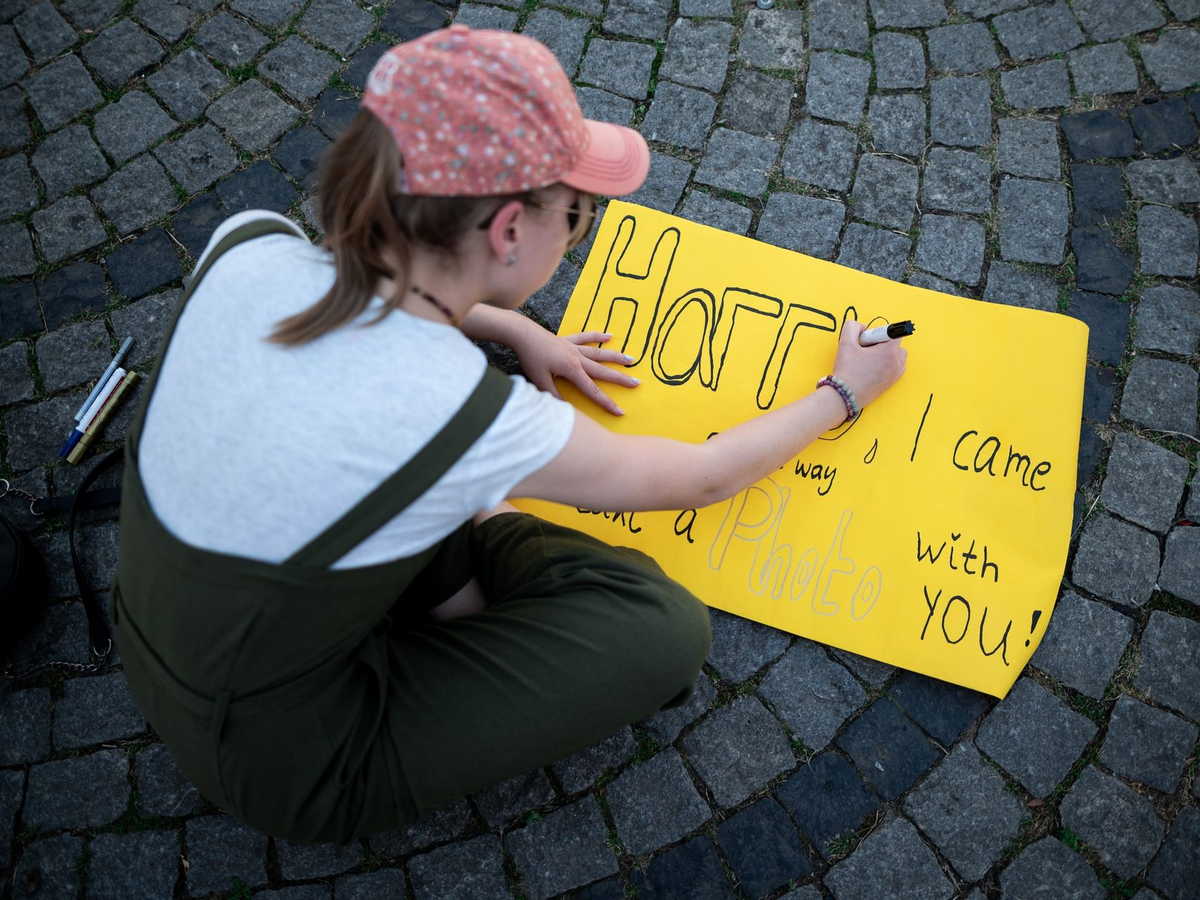 Harry, I came
way
a Photo with
YOU!